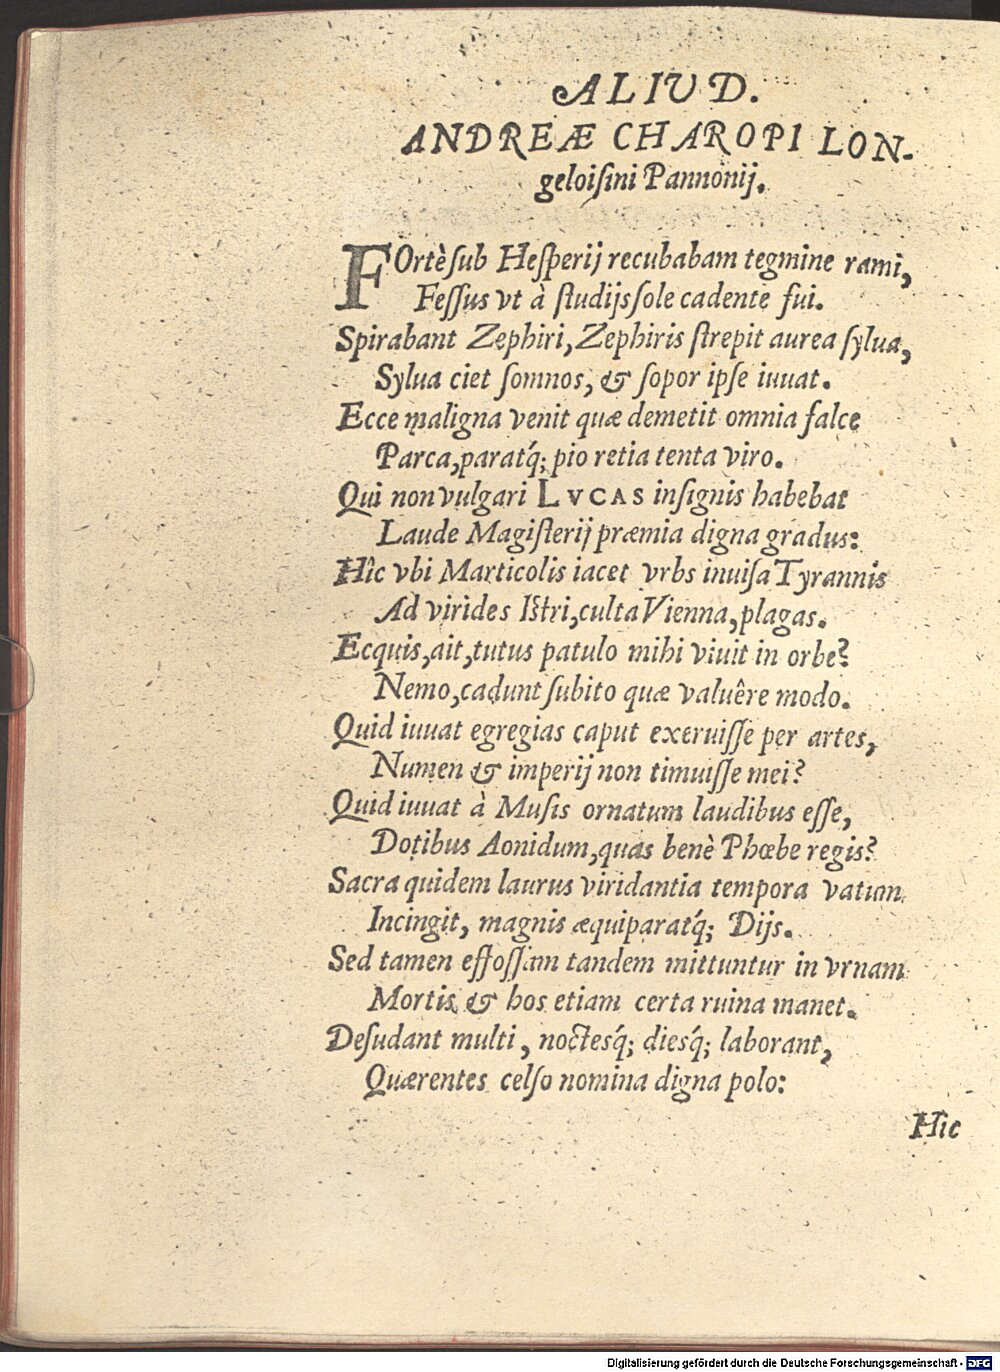 ALIUD.
ANDREÆ CHAROPI LON-
geloiſini Pannonij.
FOrtè ſub Heſperij recubabam tegmine rami,
Feſſus vt à ſtudijs ſole cadente fui.
Spirabant Zephiri, Zephiris ſtrepit aurea ſylua,
Sylua ciet ſomnos, & ſopor ipſe iuuat.
Ecce maligna venit quæ demetit omnia falce
Parca, paratq́; pio retia tenta viro.
Qui non vulgari LVCAS inſignis habebat
Laude Magiſterij præmia digna gradus:
Hîc vbi Marticolis iacet vrbs inuiſa Tyrannis
Ad virides Iſtri, culta Vienna, plagas.
Ecquis, ait, tutus patulo mihi viuit in orbe?
Nemo, cadunt ſubito quæ valuêre modo.
Quid iuuat egregias caput exeruiſſe per artes,
Numen & imperij non timuiſſe mei?
Quid iuuat à Muſis ornatum laudibus eſſe,
Dotibus Aonidum, quas benè Phœbe regis?
Sacra quidem laurus viridantia tempora vatum
Incingit, magnis æquiparatq́; Dijs.
Sed tamen effoſſam tandem mittuntur in vrnam
Mortis & hos etiam certa ruina manet.
Deſudant multi, noctesq́; diesq́; laborant,
Quærentes celſo nomina digna polo:
Hic
Digitalisierung gefördert durch die Deutsche Forschungsgemeinschaft - DFG